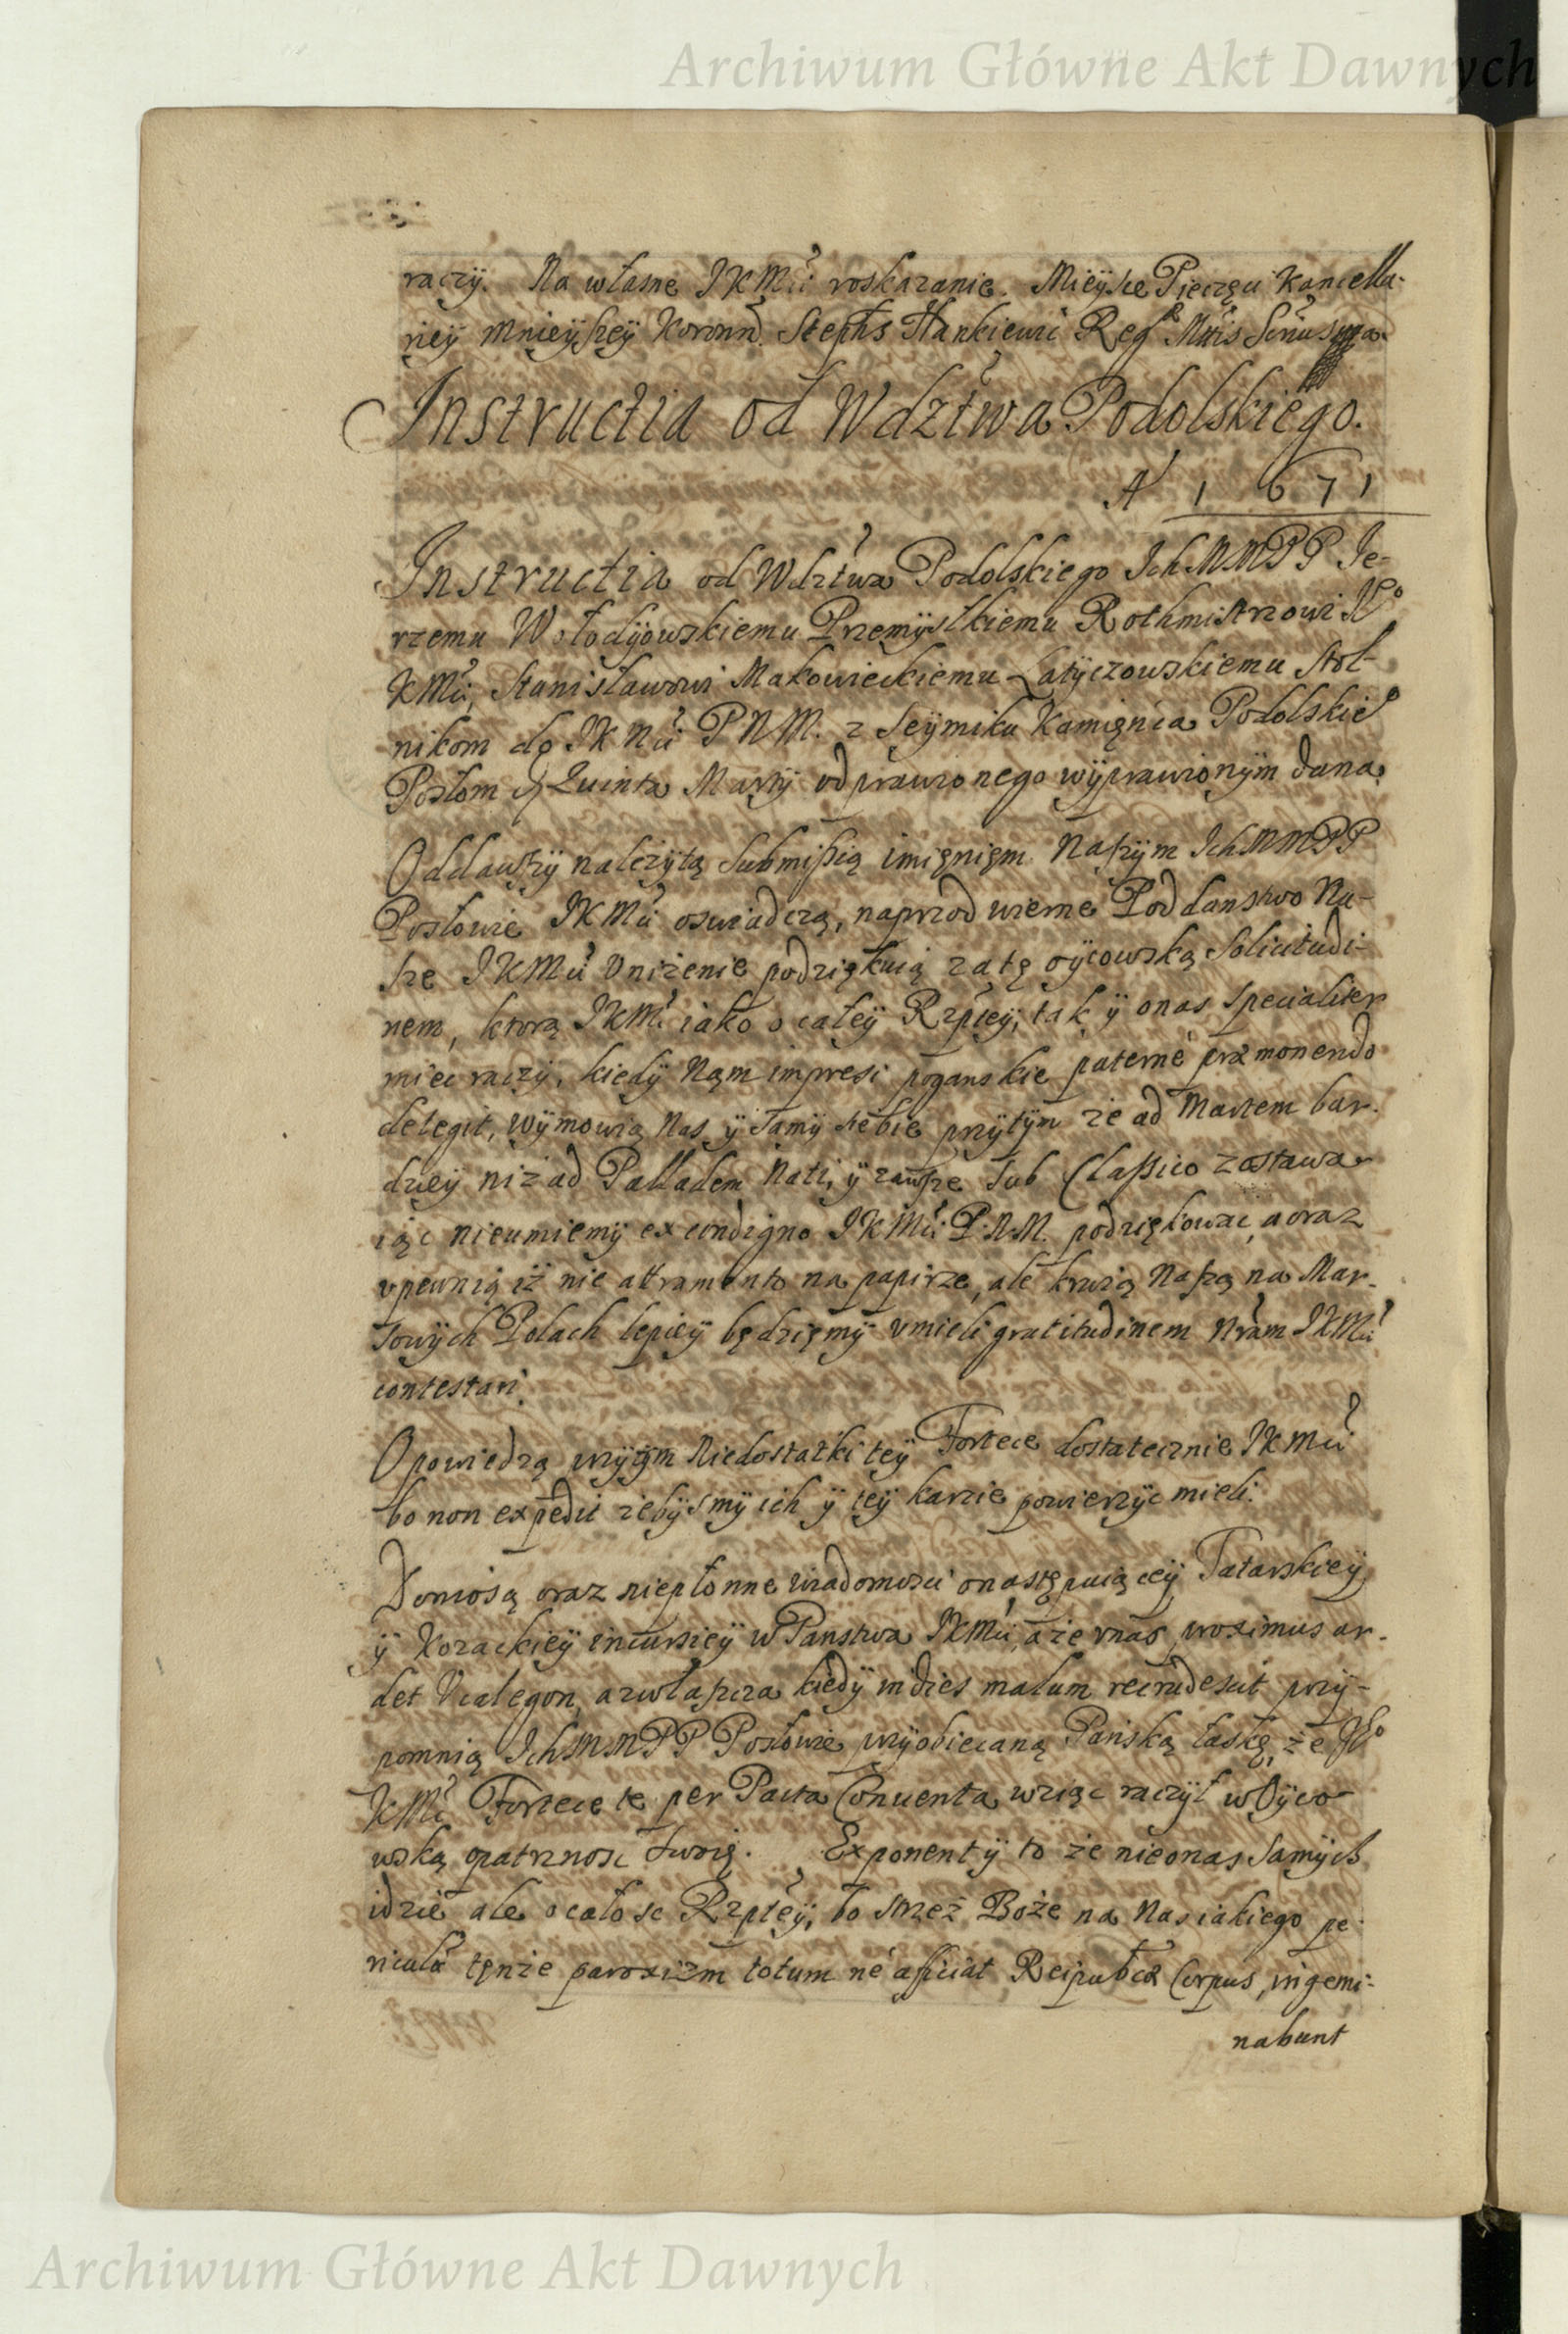 Archiwum Główne Akt Dawnych
raczÿ. Na własne JKMći roskazanie. Mieÿsce Pieczęci Kancella-
rieÿ Mnieÿszeÿ Koronń. Stephs Hankiewic Regt
Instructia od Wdztwa Podolskiego.
A 1671
Instructia od Wdztwa Podolskiego IchMMPP Je-
rzemu Wołodÿiowskiemu Przemÿslkiemu Rothmistrzowi JE°
KMći, Stanisławowi Makowieckiemu Latÿczowskiemu Stol-
nikom do JKMći PNM. z Seÿmiku Kamięńca Podolskie°
Posłom Quinta Martÿ odprawionego wÿprawionÿm dana.
Oddawszÿ należÿtą Submißią imięnięm Naszÿm IchMMPP
Posłowie JKMći oswiadczą, naprzod wierne Poddanstwo Na-
sze JKMći Vniżenie podziękuią zatę oÿcowską Solicitudi-
nem, ktorą JKMć iako o całeÿ Rzpteÿ, tak ÿ onas specialiter
miec raczÿ, kiedÿ Nąm impresi poganskie paterné præmonendo
detegit, wÿmowią Nas ÿ samÿ siebie przÿtÿm że ad Martem bar-
dzieÿ niż ad Palladem Nati, ÿ zawsze sub Claßico zostawa-
iąc nieumiemÿ ex condigno JKMći P.N.M. podziękowac, a oraz
vpewnią iż nie atramento na papirze, ale krwią Naszą na Mar-
sowÿch Polach lepieÿ będzięmÿ vmieli gratitudinem Nram JKMći
contestari.
Opowiedzą przÿtÿm Niedostatki teÿ Fortece dostatecznie JKMći
bo non expedit żebÿsmÿ ich ÿ teÿ karcie powierzÿc mieli.
Doniosą oraz niepłonne wiadomosci onastępuiąceÿ Tatarskieÿ
ÿ Kozackieÿ incursieÿ w Panstwa JKMći, a że vnas proximus ar-
det Vcalegon, azwłaszcza kiedÿ indies malum recrudescit przÿ-
pomnią IchMMPP Posłowie przÿobiecaną Pańską łaskę, że JE°
KMć Fortecę te per Pacta Conuenta wziąc raczÿł w Oÿco-
wską opatrznosc swoię. Exponent ÿ to że nieonas Samÿch
idzie ale ocałosc Rzpteÿ, bo strzeż Boże na Nas iakiego pe-
riculū tęnże paroxizm totum né aficiat Reipublicæ Corpus, ingemi-
nabunt
Archiwum Główne Akt Dawnych